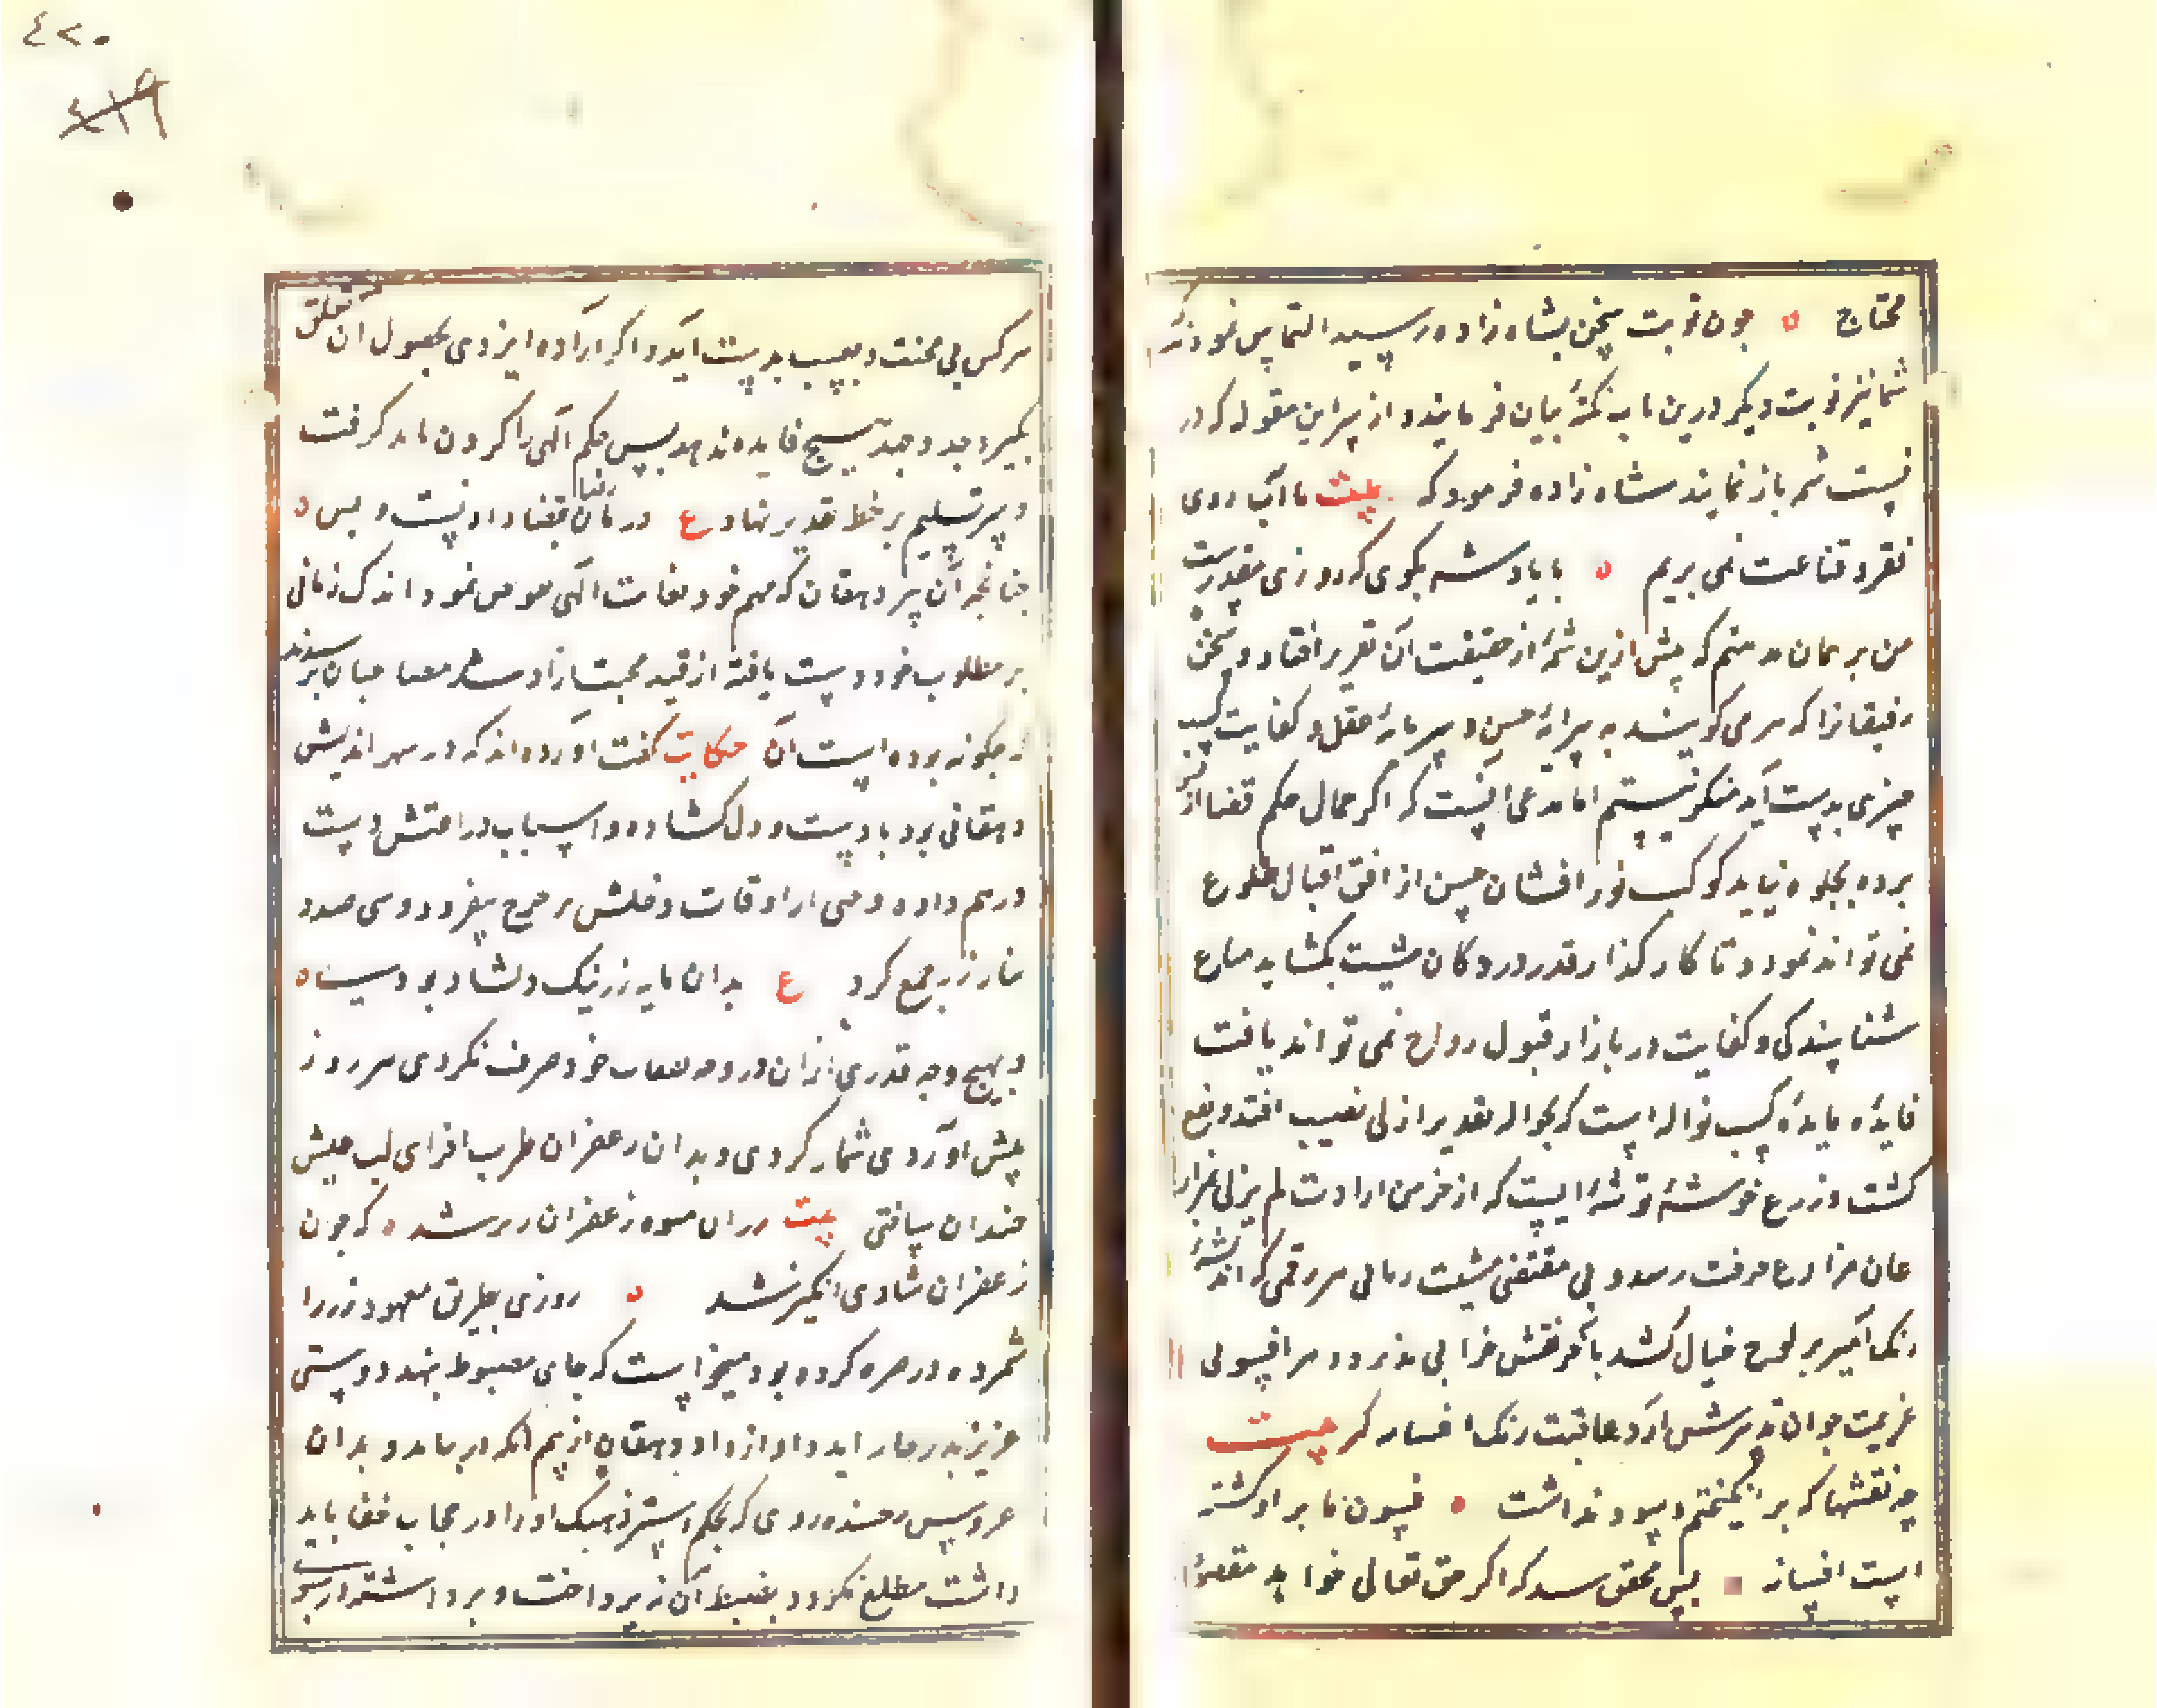 محتاج ه چون نوبت سخن بشاه زاده رسید التماس نمودند که
شما نیز نوبت دیگر درین باب نکتهٔ بیان فرمایند و از سر این مقوله که در
شاه زاده فرمود که بیت ما آب روی
فقر و قناعت نمی بریم ه با پادشه بکوی که روزی مقدرست
من بر همان مذهبم که پیش ازین شمهٔ از حقیقت آن تقریر افتاد و سخن
رفیقانرا که می کویند به پیرایهٔ حسن و سرمایهٔ عقل و کفایت کسب
چیزی بدست آید منکر نیستم اما مدعی اینست که اکر جمال حکم قضا از پس
پرده بجلوه نیاید کوکب نور افشان حسن از افق اقبال طلوع
نمی تواند نمود و تا کارکذار قدر در دکان مشیت بکشاید متاع
شناسندکی و کفایت در بازار قبول رواج نمی تواند یافت
فایدهٔ مایدهٔ کسب نواله ایست که بحوالهٔ تقدیر ازلی نصیب افتد و نفع
کشت و زرع خوشهٔ توشهٔ ایست که از خرمن ارادت لم یزلی
حرفت رسد و بی مقتضی مشیت ربانی هر رقمی که اندیشهٔ
رنک آمیز بر لوح خیال کشد بآخر نقش خرابی پذیرد و هر افسونی
عزیمت خوان تدبیرش آرد عاقبت رنک افسانه کیرد بیت
چه نقشها که برانکیختیم و سود نداشت ه فسون ما بر او کشته
است افسانه پس محقق شد که اکر حق تعالی خواهد مقصود
هر کس بی محنت و بی سبب بدست آید و اکر ارادهٔ ایزدی بحصول آن تعلق
نکیرد جد و جهد هیچ فایده ندهد پس حکم الهی را کردن باید کرفت
و سر تسلیم بر خط تقدیر نهاد ع درمان قضا داد رضا نیست و بس ه
چنانچه آن پیر دهقان که مهم خود بعنایت الهی مفوض نمود اندک زمانی
بر مطلوب خود دست یافته از قید محبت آزاد شد مصاحبان پرسیدند
که چکونه بوده است آن حکایت کفت آورده اند که در شهر اندلس
دهقانی بود با دست و دل کشاده و اسباب زراعتش دست
درهم داده وقتی از اوقات دخلش بر خرج بیفزود و سی صد
دینار زر جمع کرد ع بدان مایه زر نیک دلشاد بود
و بهیچ وجه قدری ازان در وجه مصالح خود صرف نکردی هر روز
پیش آوردی شمار کردی و بدان زعفران طرب افزای لب عیش
خندان یافتی بیت زعفران شد ه که چون
زعفران شادی انکیز شد ه روزی بطریق معهود زر را
شمرده در صره کرده بود میخواست که جای مضبوط بنهد دوستی
عزیز بدر خانه آمد و آواز داد دهقان از بیم آنکه در آید و بدان
عروس رخشنده روی که بحکم استر ذهبک او را در حجاب خفا باید
داشت مطلع کردد بضبط آن زر پرداخت و برداشته در سبو
٤٢٠
٤١٩